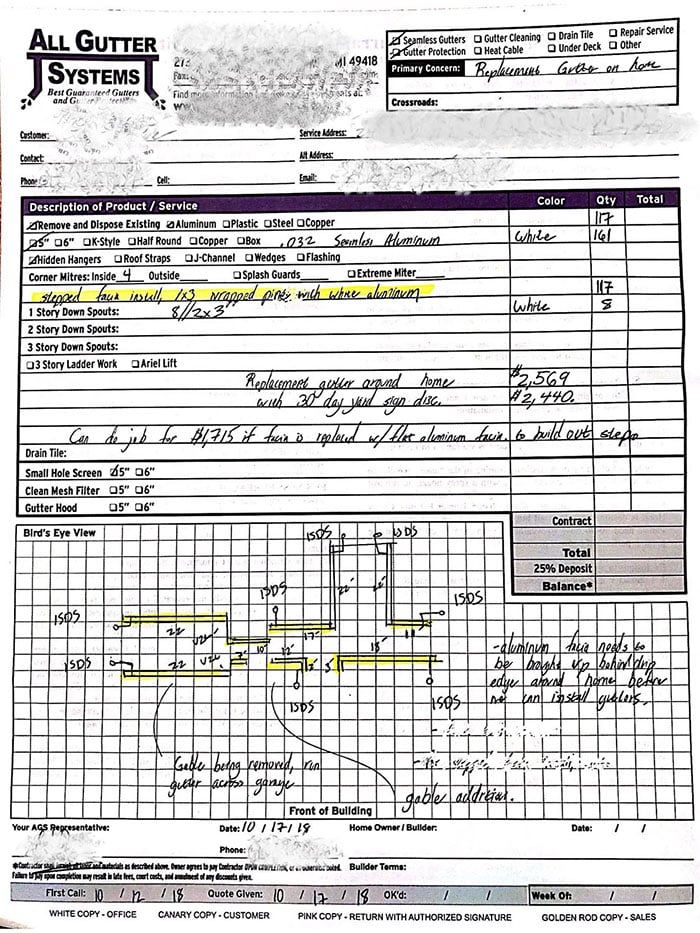 ALL GUTTER SYSTEMS
Best Guaranteed Gutters
MI 49418
Find
☑ Seamless Gutters ☐ Gutter Cleaning ☐ Drain Tile ☐ Repair Service
☑ Gutter Protection ☐ Heat Cable ☐ Under Deck ☐ Other
Primary Concern: Replacement Gutter on home
Crossroads:
Customer: Service Address:
Contact: Alt Address:
Phone Cell: Email:
Description of Product / Service Color Qty Total
☑ Remove and Dispose Existing ☑ Aluminum ☐ Plastic ☐ Steel ☐ Copper 117
☑ 5" ☐ 6" ☐ K-Style ☐ Half Round ☐ Copper ☐ Box .032 Seamless Aluminum White 161
☑ Hidden Hangers ☐ Roof Straps ☐ J-Channel ☐ Wedges ☐ Flashing
Corner Mitres: Inside 4 Outside ☐ Splash Guards ☐ Extreme Miter
stepped facia install, 1x3 wrapped pine, with white aluminum 117
1 Story Down Spouts: 8//2x3 White 8
2 Story Down Spouts:
3 Story Down Spouts:
☐ 3 Story Ladder Work ☐ Ariel Lift
Replacement gutter around home $2,569
with 30 day yard sign disc. $2,440
Can do job for $1,715 if facia is replaced w/ flat aluminum facia. to build out steps
Drain Tile:
Small Hole Screen ☑ 5" ☐ 6"
Clean Mesh Filter ☐ 5" ☐ 6"
Gutter Hood ☐ 5" ☐ 6"
Contract
Total
25% Deposit
Balance*
Bird's Eye View
1SDS 1SDS
1SDS 1SDS
1SDS
22' 17' 11
1SDS
22 10' 12' 18'
1SDS 1SDS
-aluminum facia needs to
be brought up behind drip
edge around home before
we can install gutters.
Gable being removed, run
gutter across garage
gable addition.
Front of Building
Your AGS Representative: Date: 10 / 17 / 18 Home Owner / Builder: Date: / /
Phone:
Builder Terms:
Failure to pay upon completion may result in late fees, court costs, and annulment of any discounts given.
First Call: 10 / 12 / 18 Quote Given: 10 / 17 / 18 OK'd: / / Week Of: / /
WHITE COPY - OFFICE CANARY COPY - CUSTOMER PINK COPY - RETURN WITH AUTHORIZED SIGNATURE GOLDEN ROD COPY - SALES